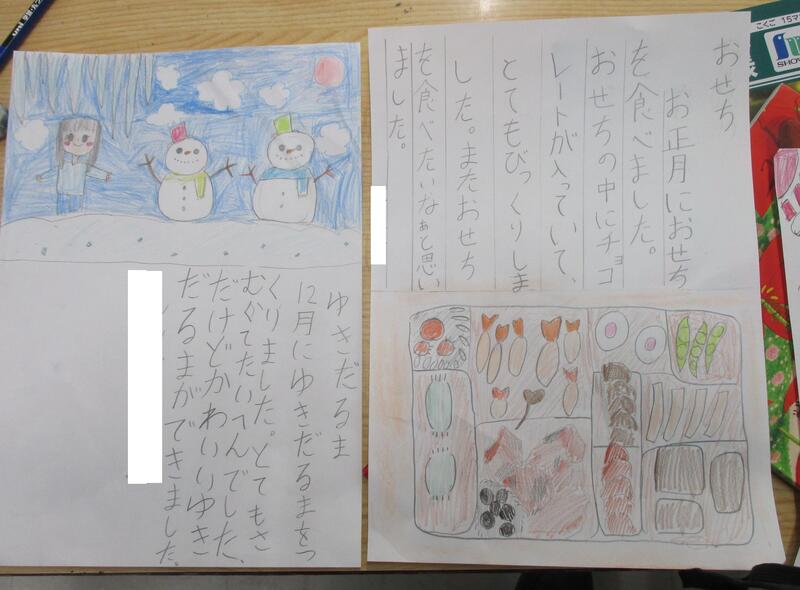 こくご 15マ
SHOW
おせち
お正月におせち
を食べました。
おせちの中にチョコ
レートが入っていて、
とてもびっくりしま
した。またおせち
を食べたいなぁと思い
ました。
ゆきだるま
12月にゆきだるまをつ
くりました。とてもさ
むくてたいへんでした、
だけどかわいいゆき
だるまができました。